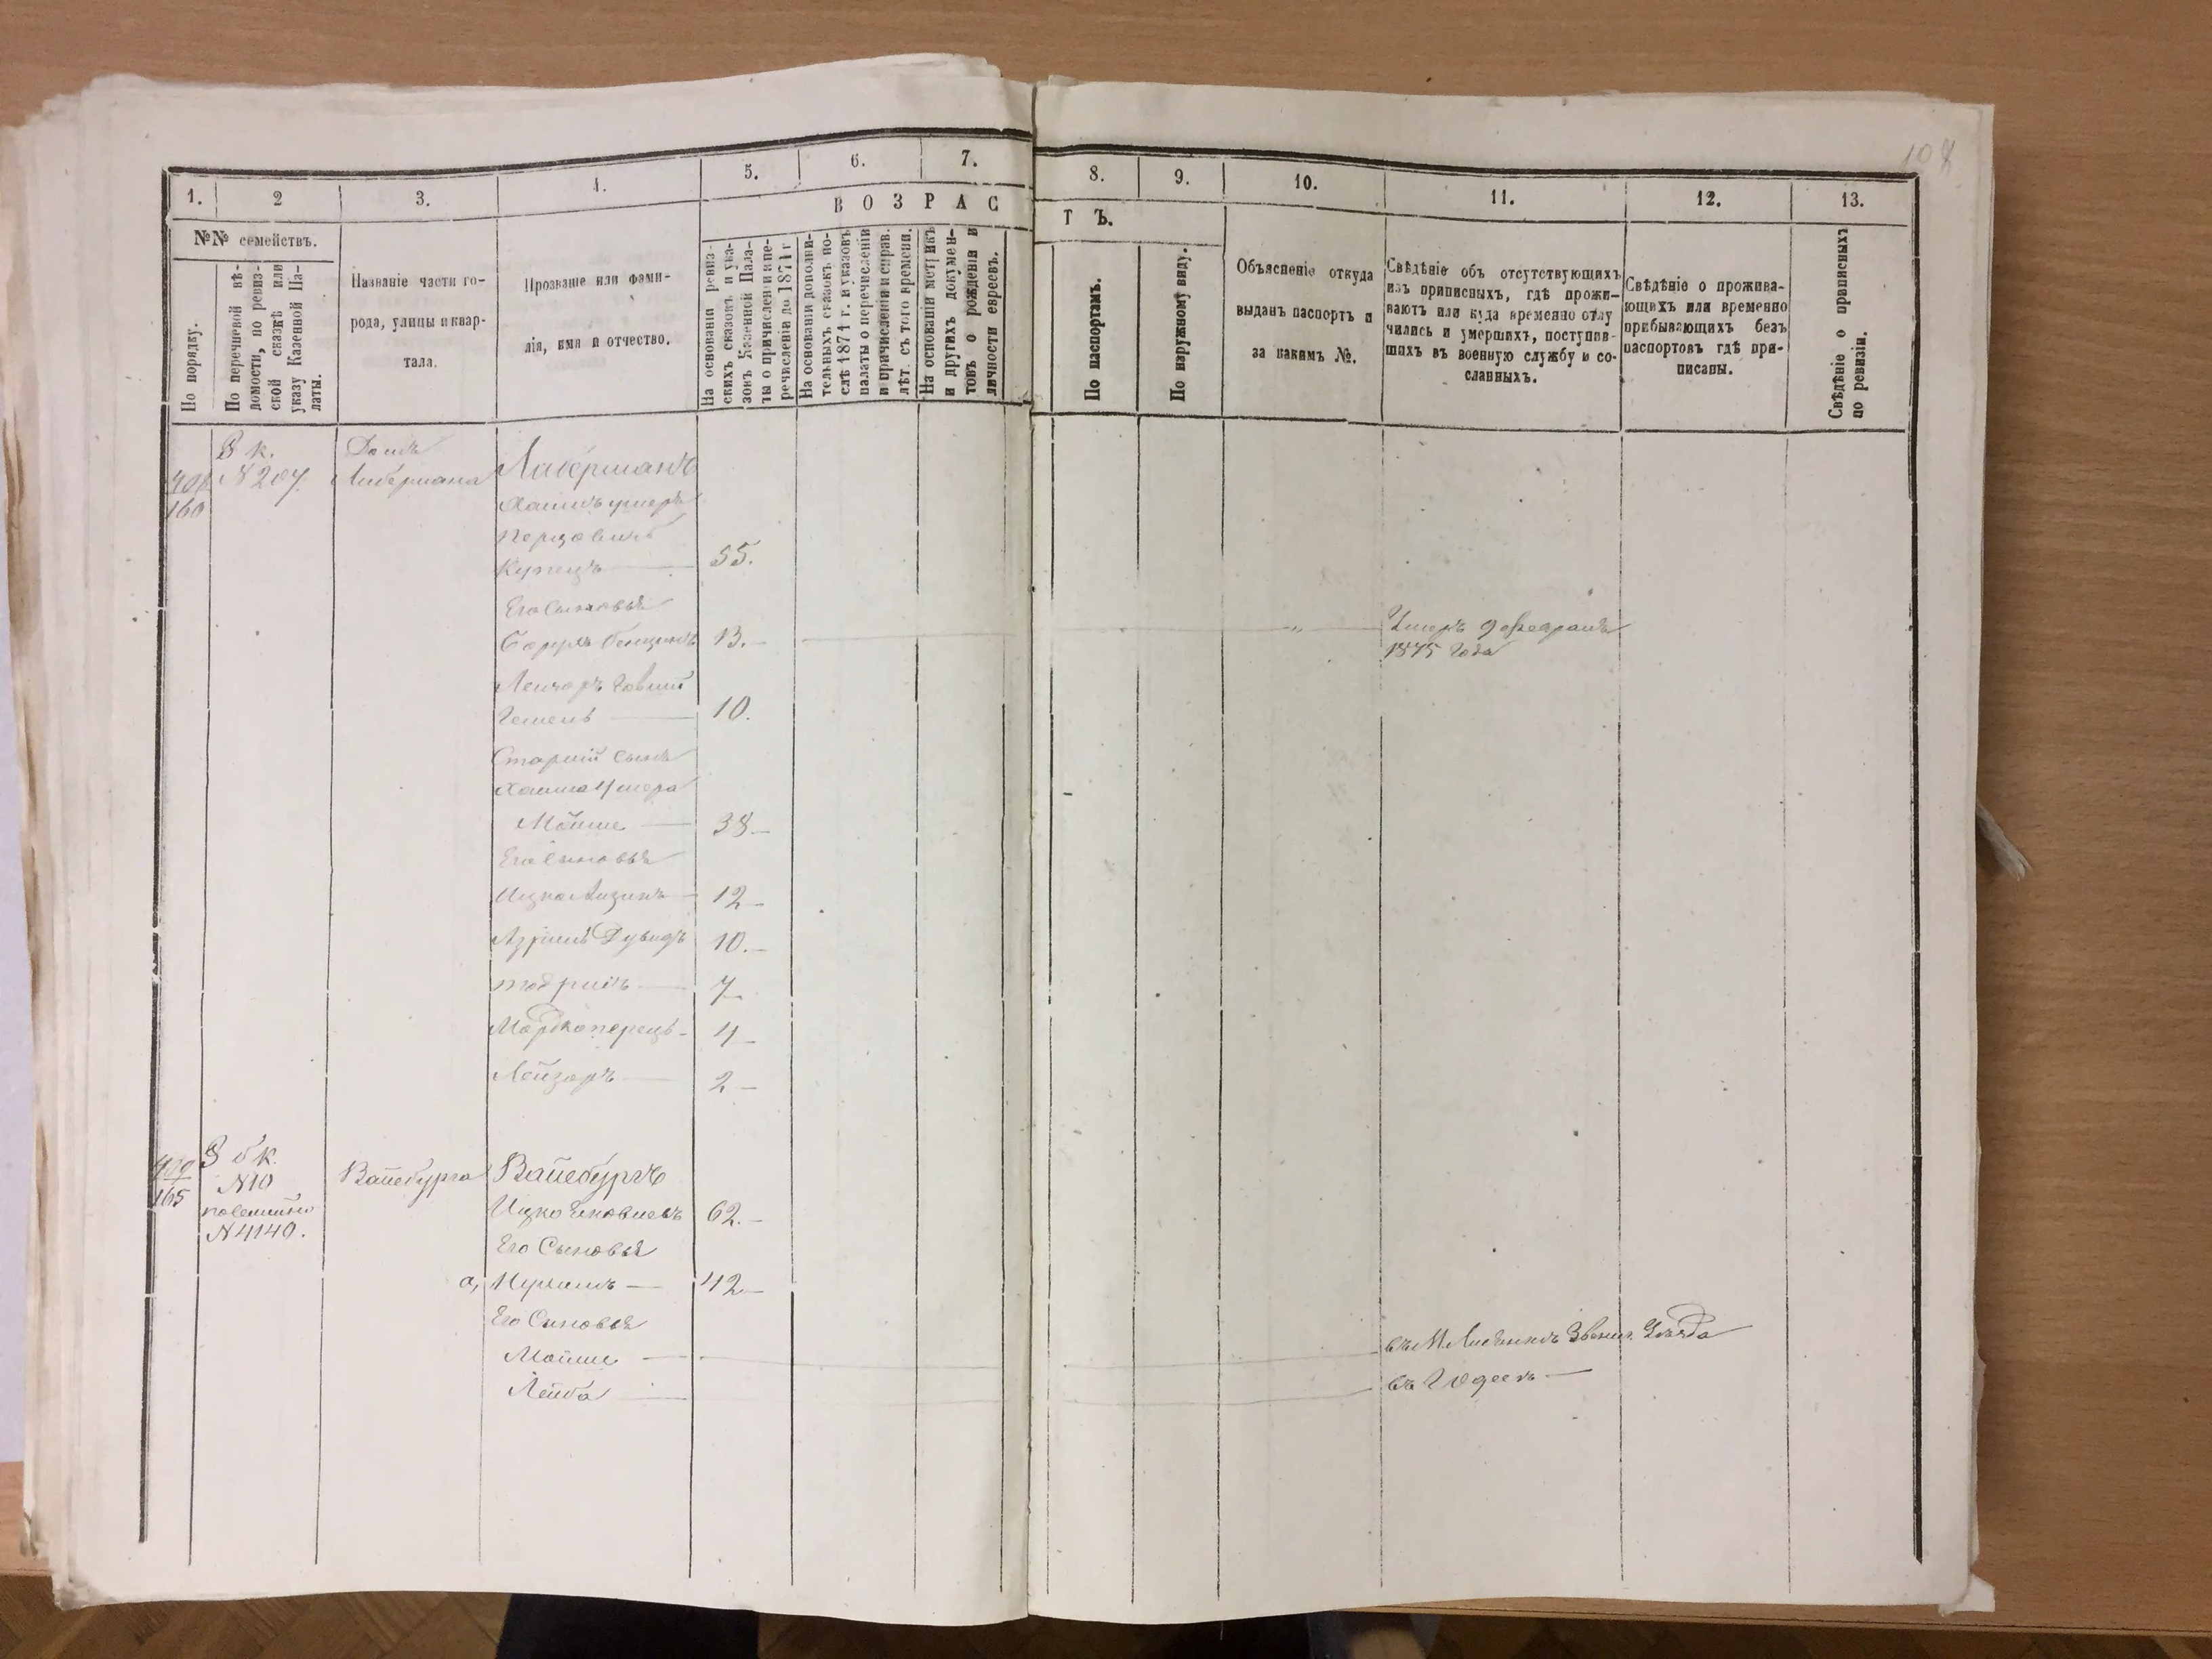 108
1.
2
3.
4.
5.
6.
7.
8.
9.
10.
11.
12.
13.
В О З Р А С
Т Ъ.
№№ семействъ.
По порядку.
По перечневой вѣ-
домости, по ревиз-
ской сказкѣ или
указу Казенной Па-
латы.
Названіе части го-
рода, улицы и квар-
тала.
Прозваніе или фами-
лія, имя и отчество.
На основаніи ревиз-
скихъ сказокъ и ука-
зовъ Казенной Пала-
ты о причисленіи и пе-
речисленіи до 1874 г
На основаніи дополни-
тельныхъ сказокъ по-
слѣ 1874 г. и указовъ
палаты о перечисленіи
и причисленіи и справ.
лѣт. съ того времени.
На основаніи метрикъ
и другихъ докумен-
товъ о рожденіи и
личности евреевъ.
По паспортамъ.
По наружному виду.
Объясненіе откуда
выданъ паспортъ и
за какимъ №.
Свѣдѣніе объ отсутствующихъ
изъ приписныхъ, гдѣ прожи-
ваютъ или куда временно отлу
чились и умершихъ, поступив-
шихъ въ военную службу и со-
сланныхъ.
Свѣдѣніе о прожива-
ющихъ или временно
пребывающихъ безъ
паспортовъ гдѣ при-
писаны.
Свѣдѣніе о приписныхъ
по ревизіи.
408
160
В к.
N 207.
Домъ
Либермана
Либерманъ
Хаимъ Умеръ
Перцовичъ
Купецъ 55.
Его Сыновья
13.- Умеръ 9 февраля
1875 года
10.
Старшій Сынъ
Хаима Умера
Мошие 38-
Его Сыновья
Ицко Аизикъ 12-
Азріиль Дувидъ 10.-
7-
Мордко Перецъ- 4-
Лейзоръ 2-
409
165
В б к.
N 10
посемейно
N 4140.
Вайсбурга
Вайсбургъ
Ицко 62.-
Его Сыновья
а, 42-
Его Сыновья
Мошие въ М. Лисянкъ Звениг. Уѣзда
Лейба въ Одессъ